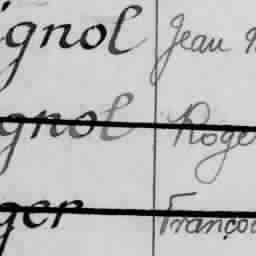 ignol Jean
gnol Roge
ger Franço